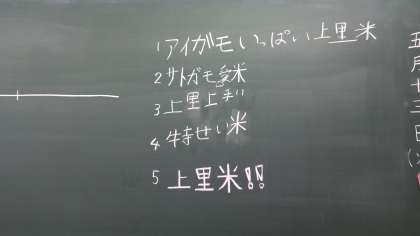 1アイガモいっぱい上里米
2サトガモ愛米
3上里上手い
4特せい米
5上里米!!
五月十三日